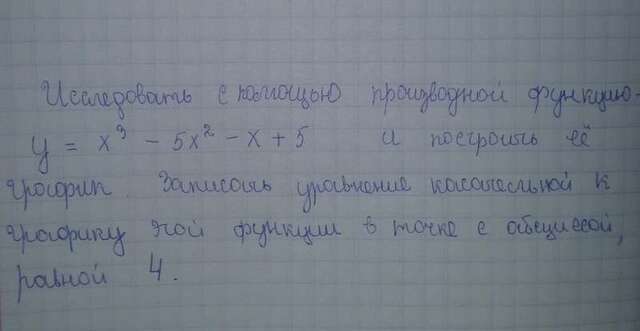 Исследовать с помощью производной функцию
y = x³ - 5x² - x + 5 и построить её
график. Записать уравнение касательной к
графику этой функции в точке с абсциссой,
равной 4.